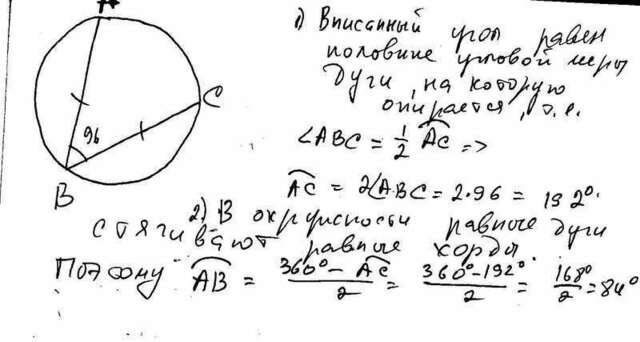 A
C
96
B
1) Вписанный угол равен
половине угловой меры
дуги, на которую
опирается, т.е.
∠ABC = 1/2 AC =>
AC = 2∠ABC = 2·96 = 192°.
2) В окружности равные дуги
стягивают равные хорды.
Поэтому AB = (360° - AC)/2 = (360° - 192°)/2 = 168°/2 = 84°